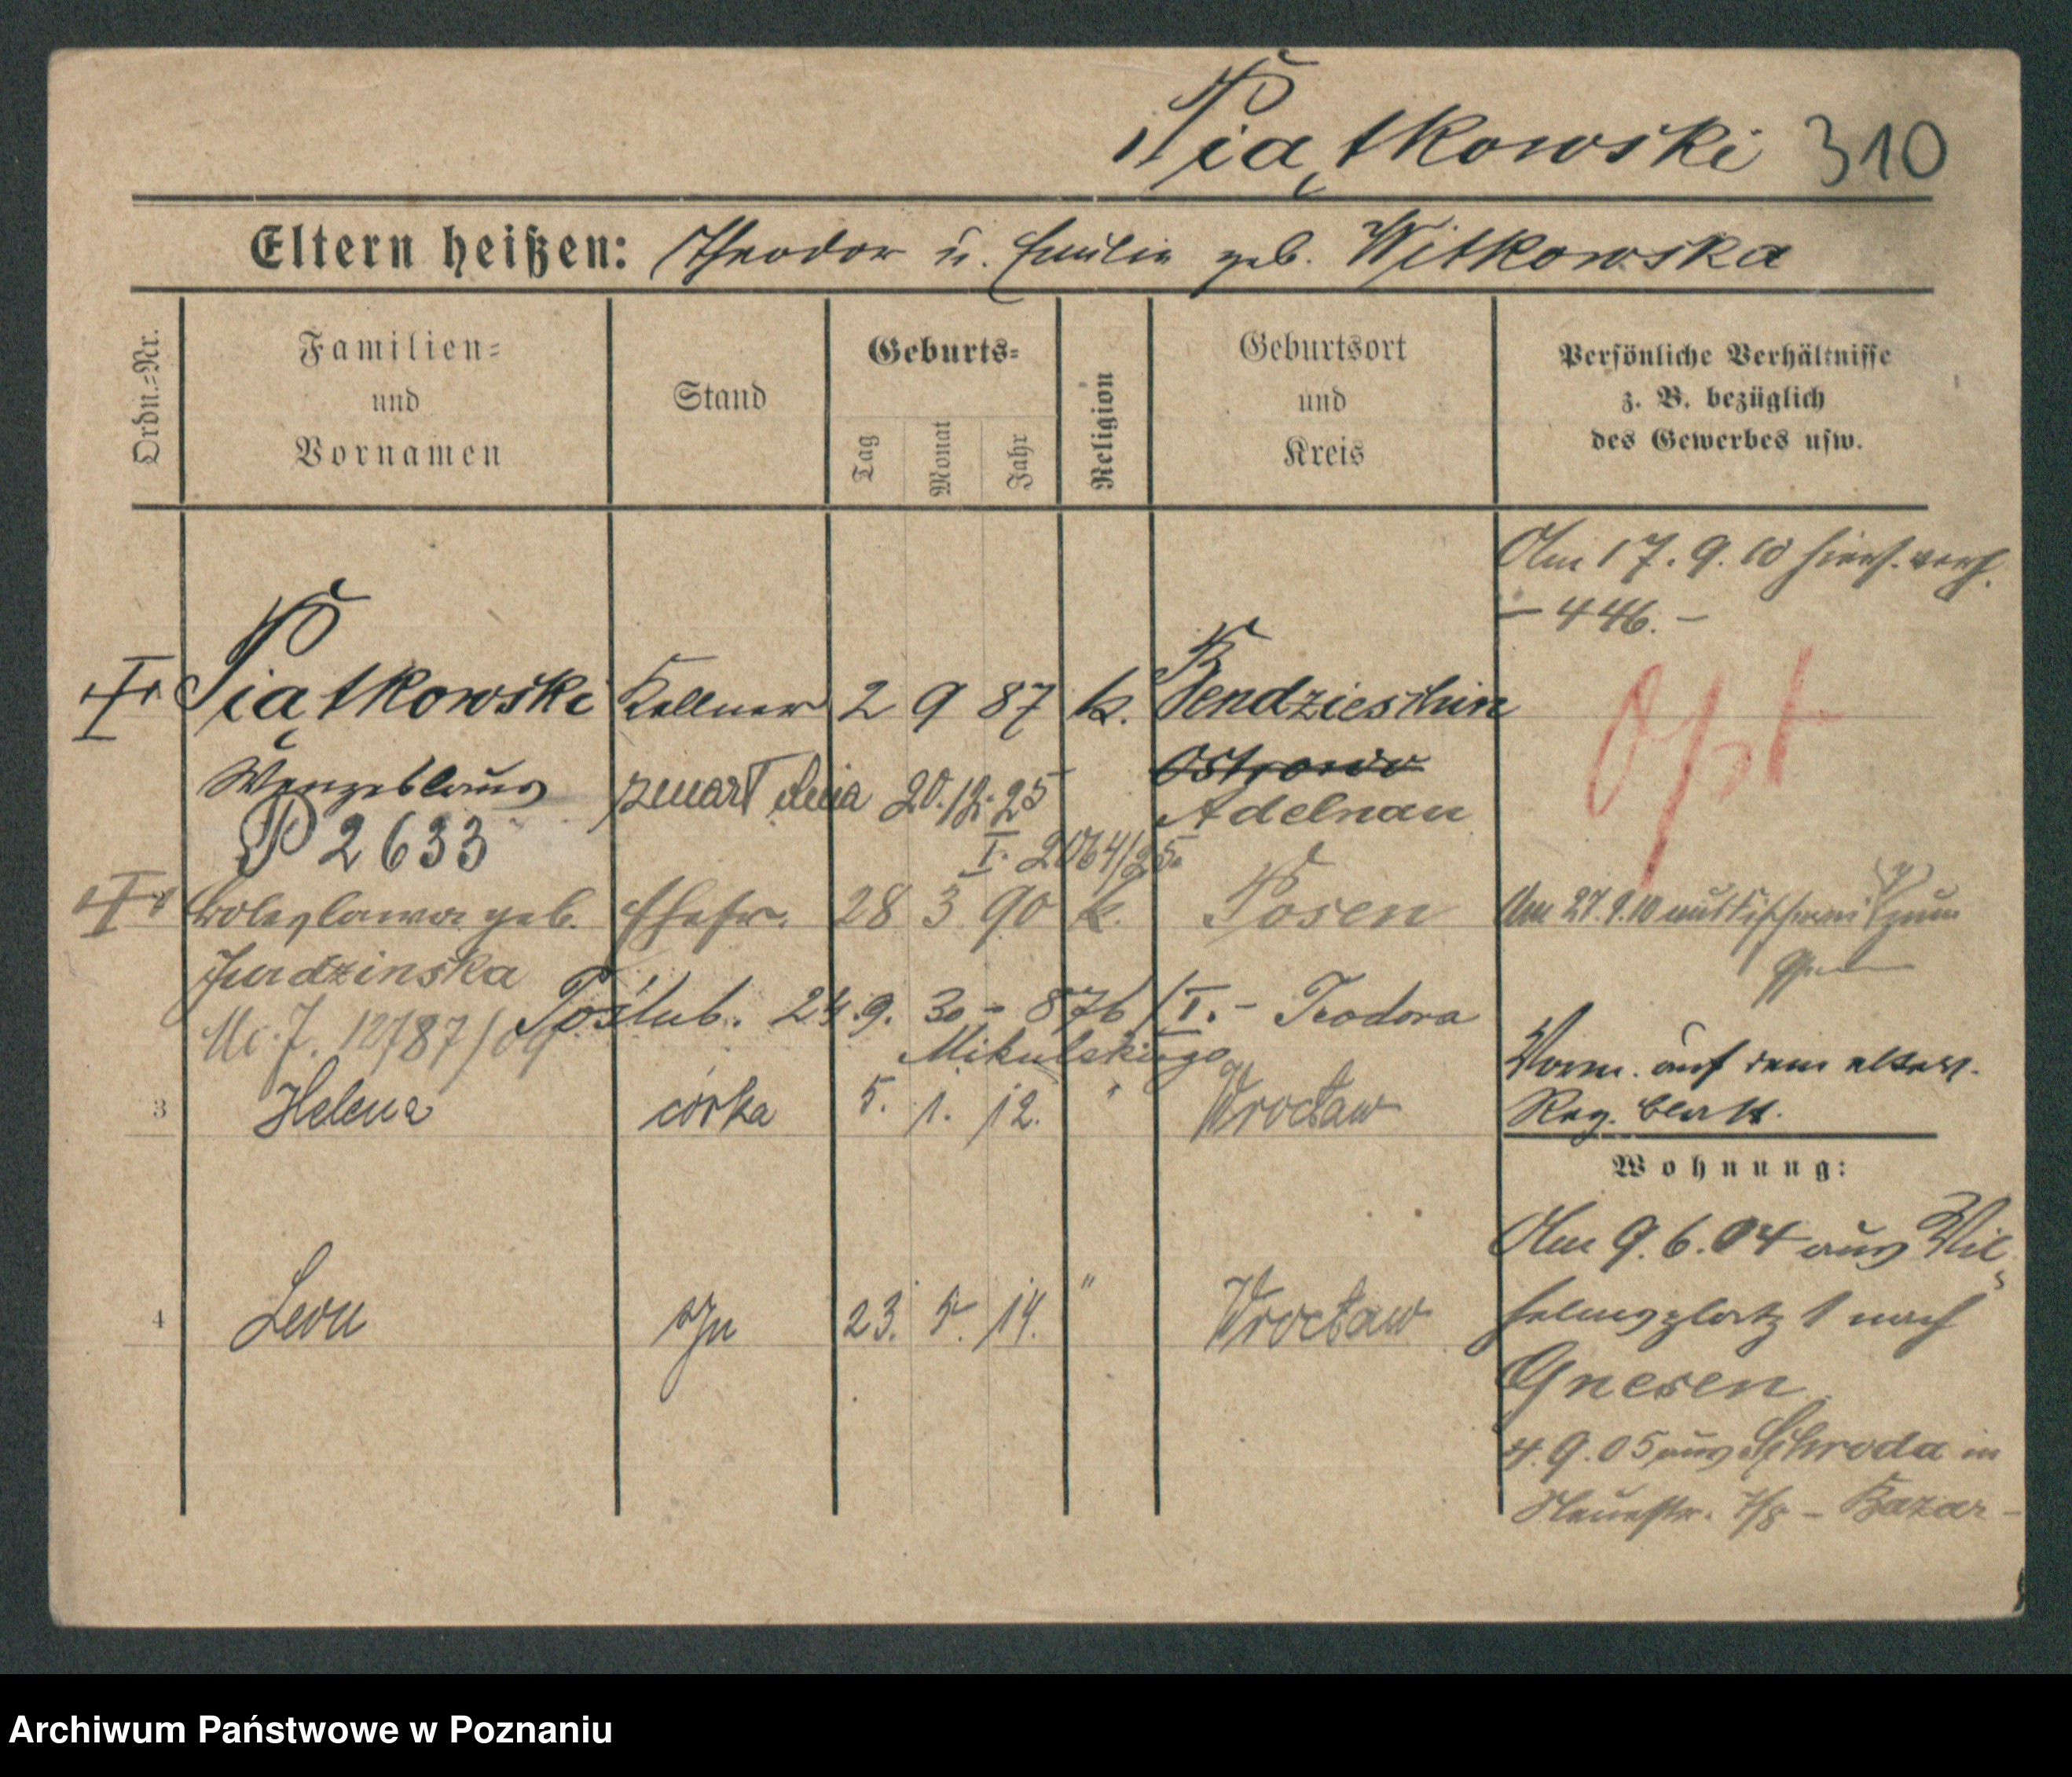 Piątkowski 310
Eltern heißen: Theodor u. Emilie geb. Witkowska
Ordn.=Nr.
Familien=
und
Vornamen
Stand
Geburts=
Tag
Monat
Jahr
Religion
Geburtsort
und
Kreis
Persönliche Verhältnisse
z. B. bezüglich
des Gewerbes usw.
Am 17. 9. 10 hiers. verh.
– 446. –
Piątkowski Kellner 2 9 87 k. Bendzieschin
Opt
Wenzeslaus zmarł dnia 20.12.25 Ostrowo
Adelnau
P 2633
I. 2064/25.
Boleslawa geb. Ehefr. 28 3 90 k. Posen
Am 27. 9. 10
Jurdzinska
Poślub. 24. 9. 30 – 876/I. – Teodora
Mikulskiego
12787/09
Verm. auf dem elterl.
Reg. Blatt.
3 Helena córka 5. 1. 12. " Wrocław
Wohnung:
Am 9. 6. 04 aus Wil-
helmsplatz 1 nach
Gnesen
4 Leon syn 23. 5. 14. " Wrocław
4. 9. 05 aus Schroda in
Neuestr. 7/8 – Bazar –
Archiwum Państwowe w Poznaniu